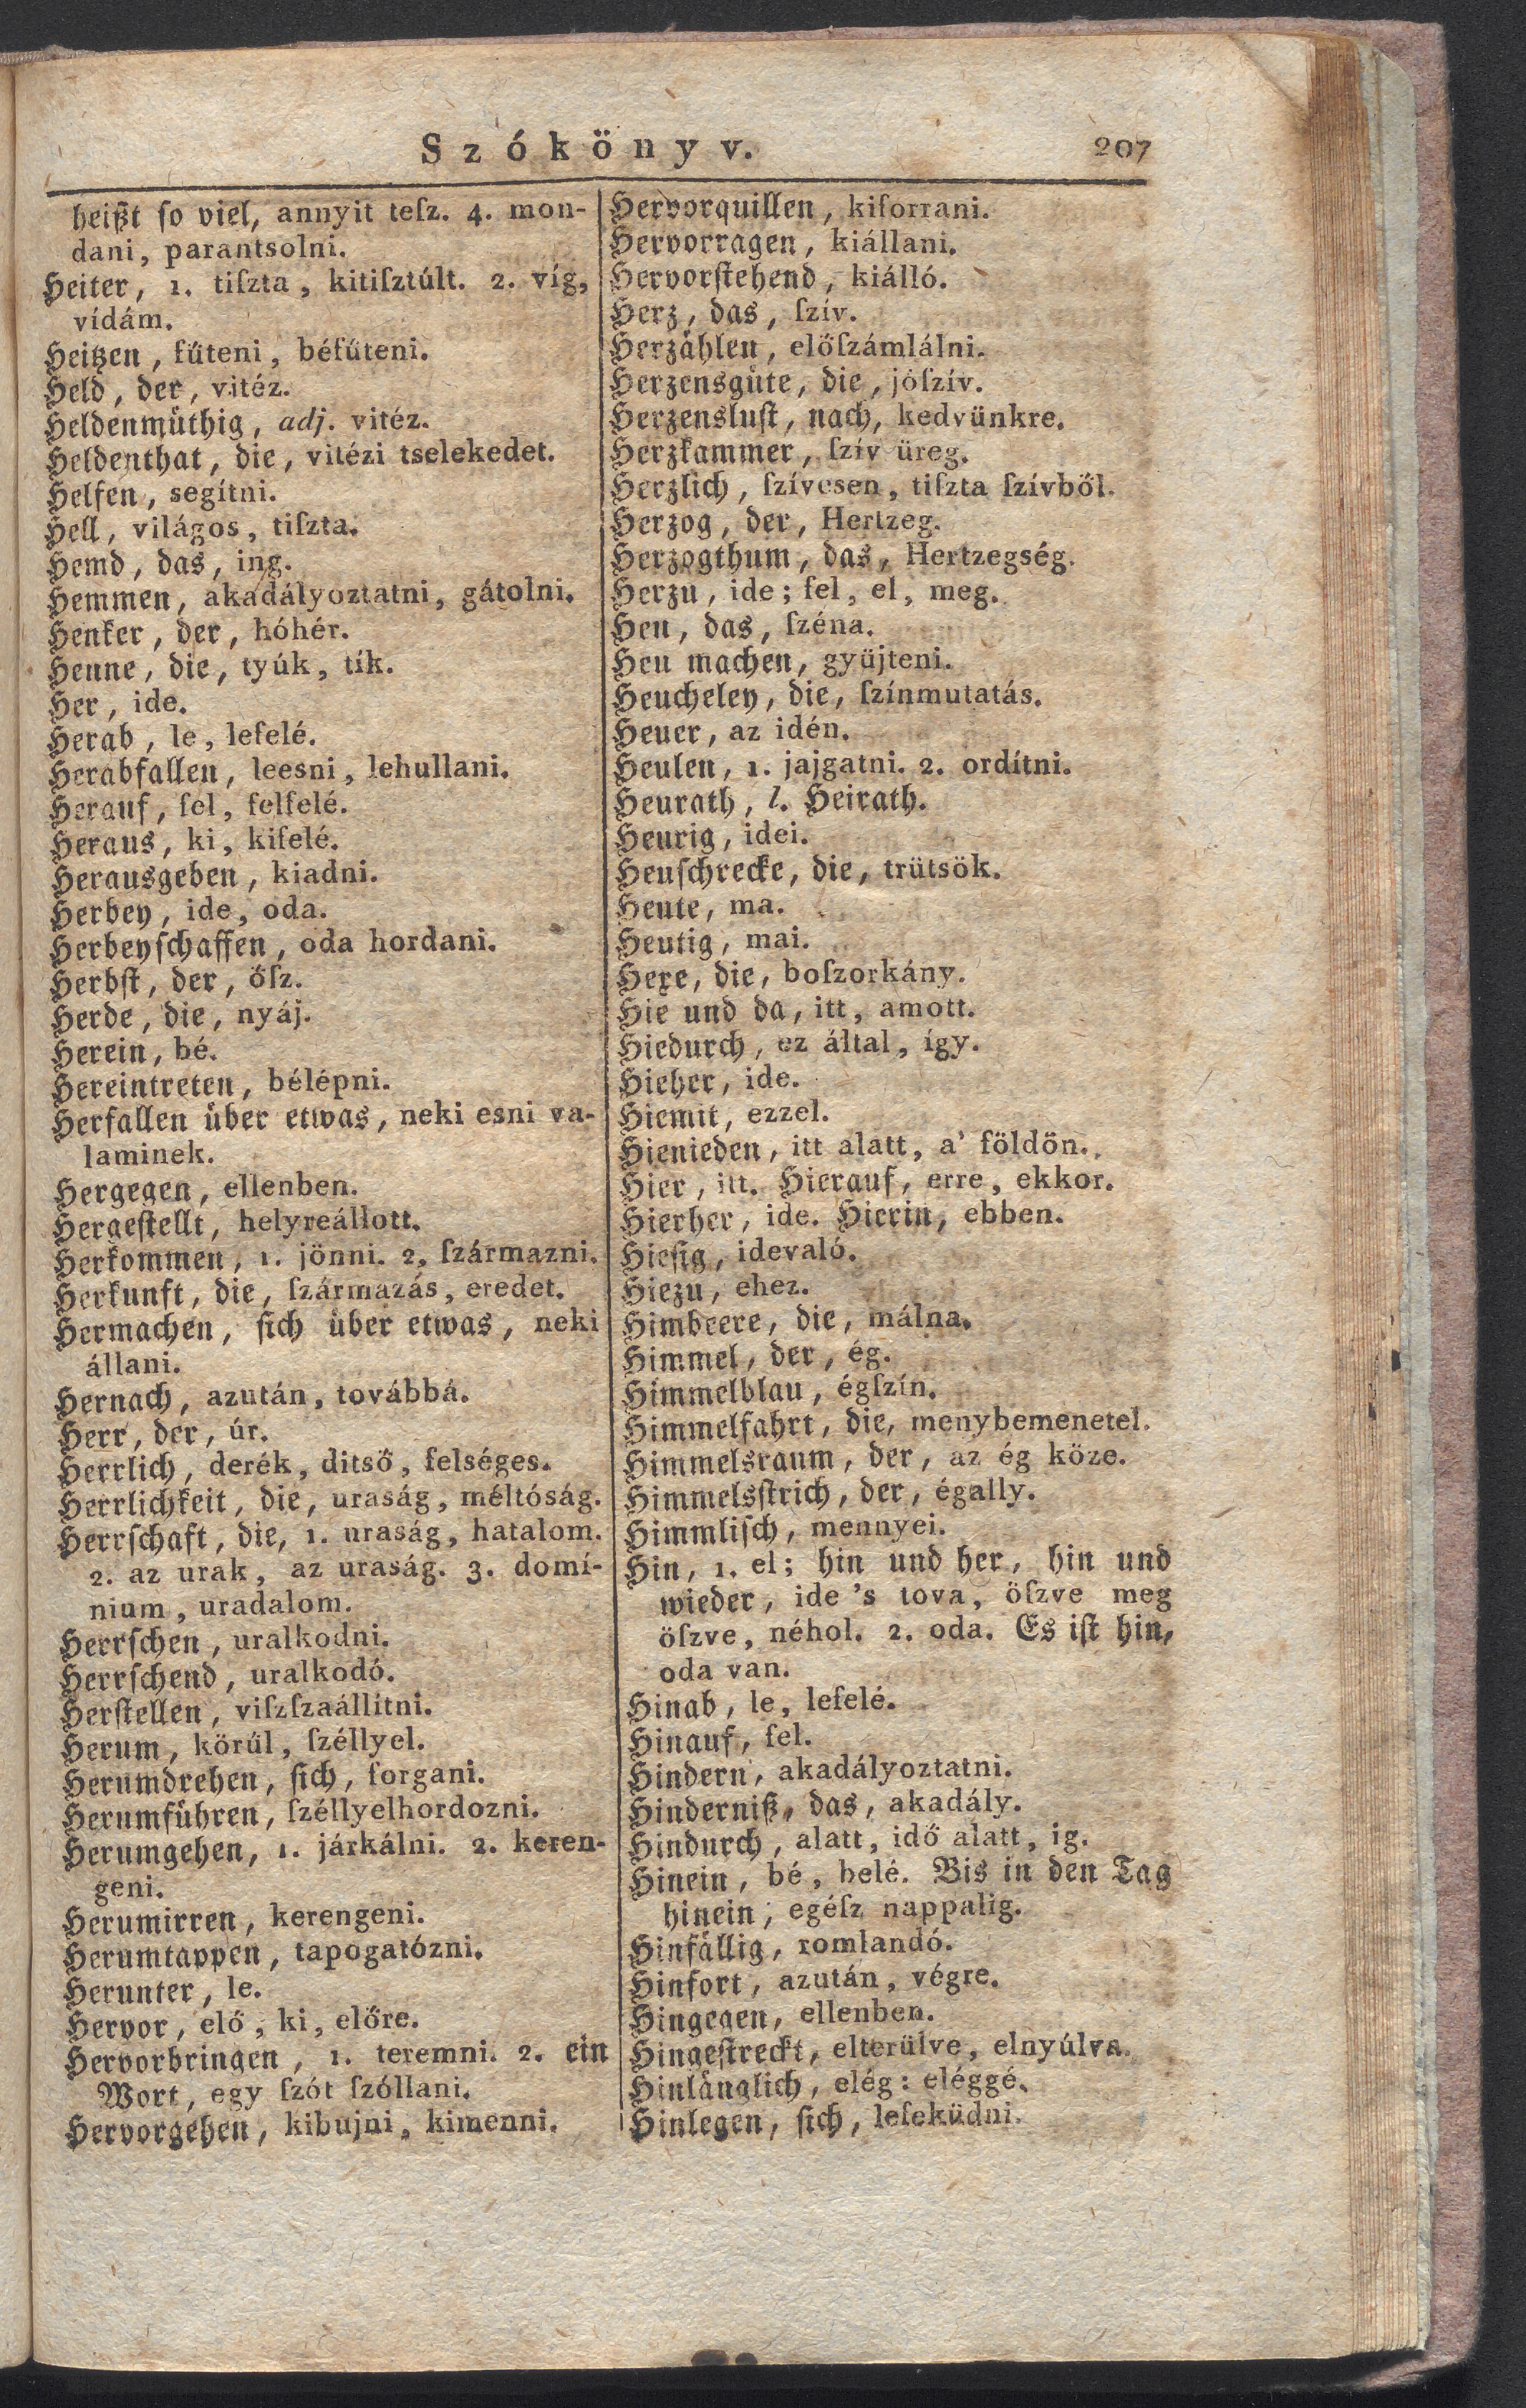 Szókönyv. 207
heißt ſo viel, annyit teſz. 4. mon-
dani, parantsolni.
Heiter, 1. tiſzta, kitiſztúlt. 2. víg,
vídám.
Heitzen, fűteni, béfűteni.
Held, der, vitéz.
Heldenmüthig, adj. vitéz.
Heldenthat, die, vitézi tselekedet.
Helfen, segítni.
Hell, világos, tiſzta.
Hemd, das, ing.
Hemmen, akadályoztatni, gátolni.
Henker, der, hóhér.
Henne, die, tyúk, tík.
Her, ide.
Herab, le, lefelé.
Herabfallen, leesni, lehullani.
Herauf, fel, felfelé.
Heraus, ki, kifelé.
Herausgeben, kiadni.
Herbey, ide, oda.
Herbeyſchaffen, oda hordani.
Herbſt, der, őſz.
Herde, die, nyáj.
Herein, bé.
Hereintreten, bélépni.
Herfallen über etwas, neki esni va-
laminek.
Hergegen, ellenben.
Hergeſtellt, helyreállott.
Herkommen, 1. jönni. 2, ſzármazni.
Herkunft, die, ſzármazás, eredet.
Hermachen, ſich über etwas, neki
állani.
Hernach, azután, továbbá.
Herr, der, úr.
Herrlich, derék, ditső, felséges.
Herrlichkeit, die, uraság, méltóság.
Herrſchaft, die, 1. uraság, hatalom.
2. az urak, az uraság. 3. domí-
nium, uradalom.
Herrſchen, uralkodni.
Herrſchend, uralkodó.
Herſtellen, viſzſzaállítni.
Herum, körűl, ſzéllyel.
Herumdrehen, ſich, forgani.
Herumführen, ſzéllyelhordozni.
Herumgehen, 1. járkálni. 2. keren-
geni.
Herumirren, kerengeni.
Herumtappen, tapogatózni.
Herunter, le.
Hervor, elő, ki, előre.
Hervorbringen, 1. teremni. 2. ein
Wort, egy ſzót ſzóllani.
Hervorgehen, kibujni, kimenni.
Hervorquillen, kiforrani.
Hervorragen, kiállani.
Hervorſtehend, kiálló.
Herz, das, ſzív.
Herzählen, előſzámlálni.
Herzensgüte, die, jóſzív.
Herzensluſt, nach, kedvünkre.
Herzkammer, ſzív üreg.
Herzlich, ſzívesen, tiſzta ſzívből.
Herzog, der, Hertzeg.
Herzogthum, das, Hertzegség.
Herzu, ide; fel, el, meg.
Heu, das, ſzéna.
Heu machen, gyüjteni.
Heucheley, die, ſzínmutatás.
Heuer, az idén.
Heulen, 1. jajgatni. 2. ordítni.
Heurath, l. Heirath.
Heurig, idei.
Heuſchrecke, die, trütsök.
Heute, ma.
Heutig, mai.
Hexe, die, boſzorkány.
Hie und da, itt, amott.
Hiedurch, ez által, így.
Hieher, ide.
Hiemit, ezzel.
Hienieden, itt alatt, a' földön.
Hier, itt. Hierauf, erre, ekkor.
Hierher, ide. Hierin, ebben.
Hieſig, idevaló.
Hiezu, ehez.
Himbeere, die, málna.
Himmel, der, ég.
Himmelblau, égſzín.
Himmelfahrt, die, menybemenetel.
Himmelsraum, der, az ég köze.
Himmelsſtrich, der, égally.
Himmliſch, mennyei.
Hin, 1. el; hin und her, hin und
wieder, ide 's tova, öſzve meg
öſzve, néhol. 2. oda. Es iſt hin,
oda van.
Hinab, le, lefelé.
Hinauf, fel.
Hindern, akadályoztatni.
Hinderniß, das, akadály.
Hindurch, alatt, idő alatt, ig.
Hinein, bé, belé. Bis in den Tag
hinein, egéſz nappalig.
Hinfällig, romlandó.
Hinfort, azután, végre.
Hingegen, ellenben.
Hingeſtreckt, elterülve, elnyúlva.
Hinlänglich, elég: eléggé.
Hinlegen, ſich, lefeküdni.